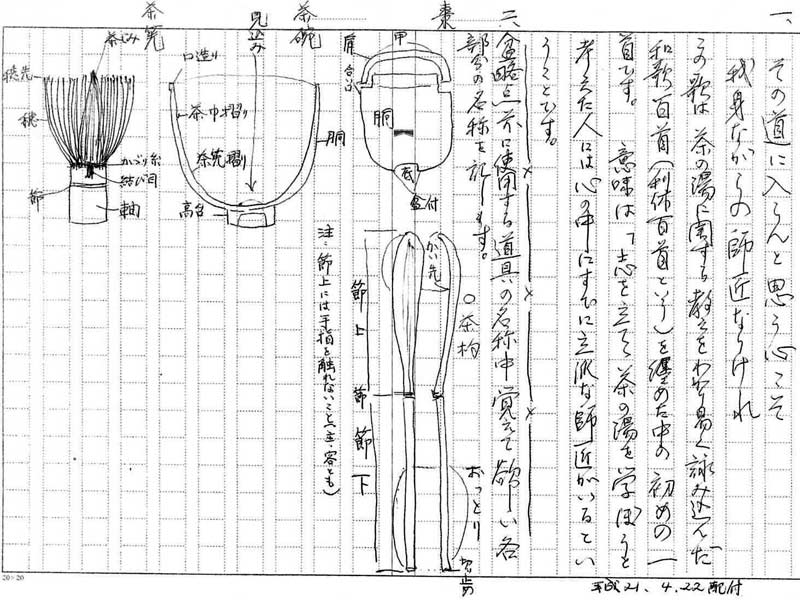 一、
その道に入らんと思う心こそ
我身ながらの師匠なりけれ
この歌は茶の湯に関する教えをわかり易く詠み込んだ
和歌百首（利休百首という）を纏めた中の初めの一
首です。　意味は「志を立て、茶の湯を学ぼうと
考えた人には心の中にすでに立派な師匠がいるとい
うことです。
二、盆略点前に使用する道具の名称中覚えて欲しい各
部分の名称を記します。
棗
甲
肩
合口
胴
底
盆付
○茶杓
かい先
節上
節
節下
おっとり
切止め
注：節上には手指を触れないこと（主・客とも）
茶碗
見込み
口造り
茶巾摺り
茶筅摺り
胴
高台
茶筅
穂先
穂
かがり糸
結び目
節
軸
平成21.4.22配付
20×20